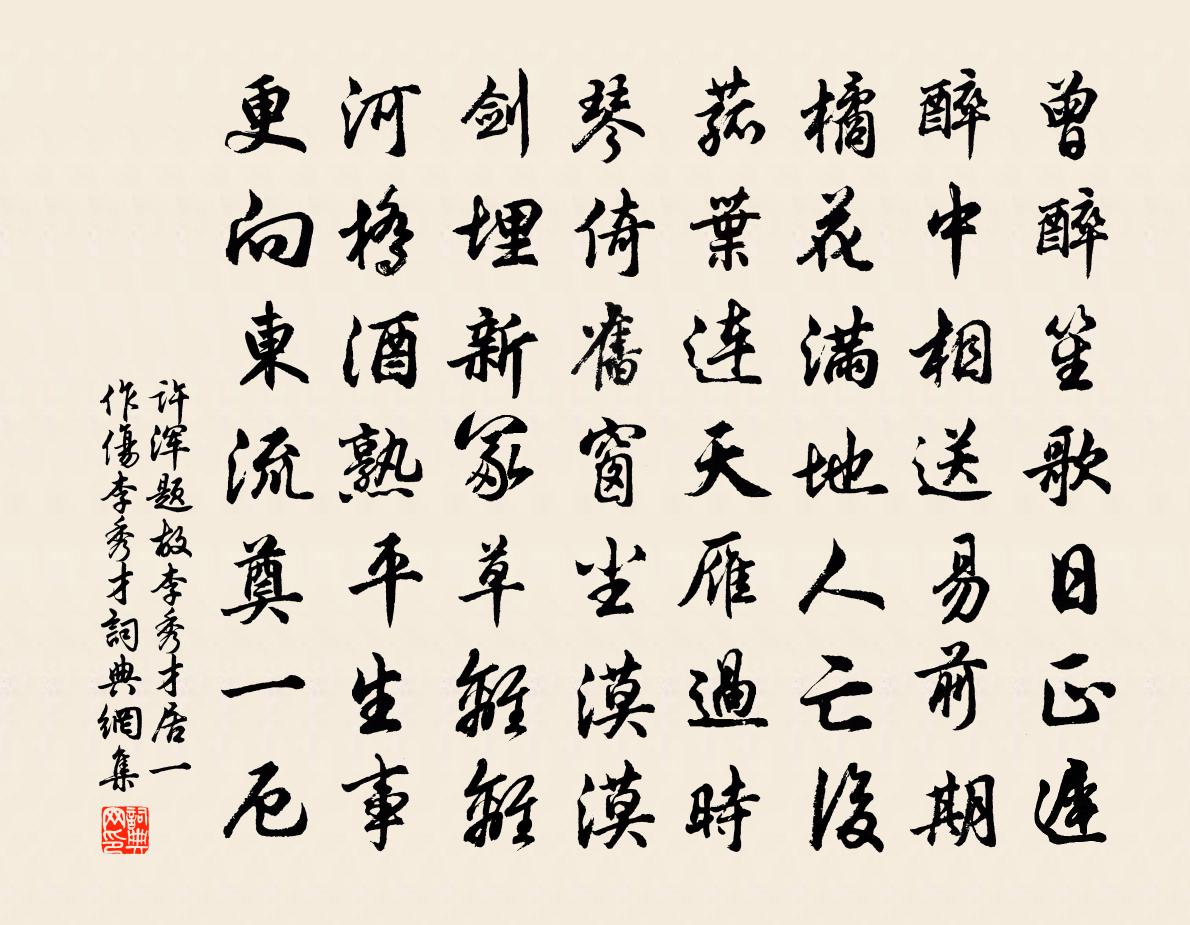 曾醉笙歌日正遲
醉中相送易前期
橘花滿地人亡後
菰葉連天雁過時
琴倚舊窗塵漠漠
劍埋新冢草離離
河橋酒熟平生事
更向東流奠一卮
许浑题故李秀才居一
作傷李秀才詞典網集
詞典
网印